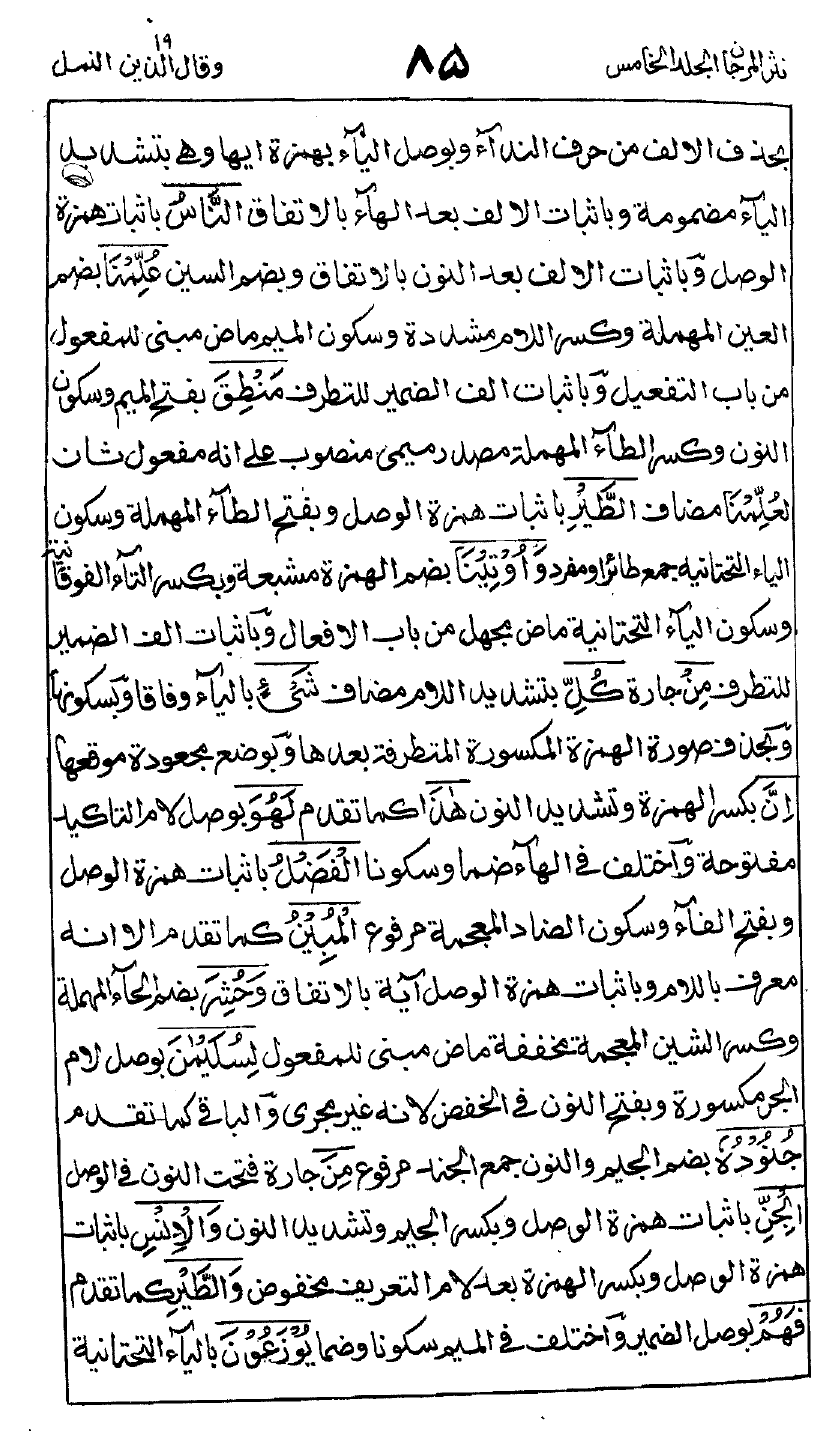 نثر المرجان المجلد الخامس
٨٥
وقال الذين ١٩ النمل
بحذف الالف من حرف النداء وبوصل الياء بهمزة ايها وهي بتشديد
الياء مضمومة وباثبات الالف بعد الهاء بالاتفاق النَّاسُ باثبات همزة
الوصل وباثبات الالف بعد النون بالاتفاق وبضم السين عُلِّمْنَا بضم
العين المهملة وكسر اللام مشددة وسكون الميم ماض مبنى للمفعول
من باب التفعيل وباثبات الف الضمير للتطرف مَنْطِقَ بفتح الميم وسكون
النون وكسر الطاء المهملة مصدر ميمى منصوب على انه مفعول ثان
لعُلِّمْنَا مضاف الطَّيْرِ باثبات همزة الوصل وبفتح الطاء المهملة وسكون
الياء التحتانية جمع طائر او مفرد وَأُوْتِيْنَا بضم الهمزة مشبعة وبكسر التاء الفوقانية
وسكون الياء التحتانية ماض مجهل من باب الافعال وباثبات الف الضمير
للتطرف مِنْ جارة كُلِّ بتشديد اللام مضاف شَيْءٍ بالياء وفاقا وبسكونها
وبحذف صورة الهمزة المكسورة المتطرفة بعدها وبوضع مجعودة موقعها
اِنَّ بكسر الهمزة وتشديد النون هٰذَا كما تقدم لَهُوَ بوصل لام التاكيد
مفتوحة واختلف في الهاء ضما وسكونا الْفَضْلُ باثبات همزة الوصل
وبفتح الفاء وسكون الضاد المعجمة مرفوع الْمُبِيْنُ كما تقدم الا انه
معرف باللام وباثبات همزة الوصل آية بالاتفاق وَحُشِرَ بضم الحاء المهملة
وكسر الشين المعجمة مخففة ماض مبنى للمفعول لِسُلَيْمٰنَ بوصل لام
الجر مكسورة وبفتح النون في الخفض لانه غير مجرى والباقي كما تقدم
جُنُوْدُهٗ بضم الجيم والنون جمع الجند مرفوع مِنَ جارة فتحت النون في الوصل
الْجِنِّ باثبات همزة الوصل وبكسر الجيم وتشديد النون وَالْاِنْسِ باثبات
همزة الوصل وبكسر الهمزة بعد لام التعريف مخفوض وَالطَّيْرِ كما تقدم
فَهُمْ بوصل الضمير واختلف في الميم سكونا وضما يُوْزَعُوْنَ بالياء التحتانية